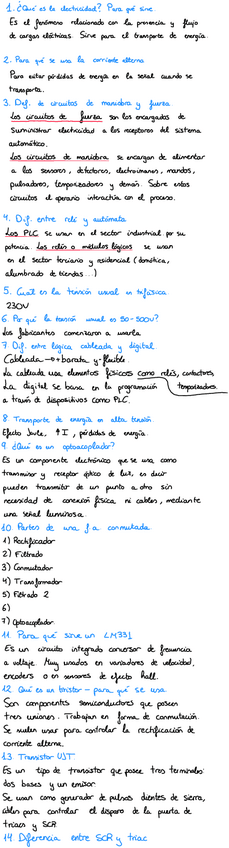 1. ¿Qué es la electricidad? Para qué sirve
Es el fenómeno relacionado con la presencia y flujo
de cargas eléctricas. Sirve para el transporte de energía.
2. Para qué se usa la corriente alterna
Para evitar pérdidas de energía en la señal cuando se
transporta.
3. Def. de circuitos de maniobra y fuerza
Los circuitos de fuerza son los encargados de
suministrar electricidad a los receptores del sistema
automático.
Los circuitos de maniobra se encargan de alimentar
a los sensores, detectores, electroimanes, mandos,
pulsadores, temporizadores y demás. Sobre estos
circuitos el operario interactúa con el proceso.
4. Dif. entre relé y autómata
Los PLC se usan en el sector industrial por su
potencia. Los relés o módulos lógicos se usan
en el sector terciario y residencial (domótica,
alumbrado de tiendas...)
5. Cuál es la tensión usual en trifásica
230V
6. Por qué la tensión usual es 50-500V?
Los fabricantes comenzaron a usarla
7. Dif. entre lógica cableada y digital
Cableada → + barata y flexible
La cableada usa elementos físicos como relés, contactores,
temporizadores.
La digital se basa en la programación
a través de dispositivos como PLC.
8. Transporte de energía en alta tensión
Efecto Joule, ↑I, pérdidas de energía.
9. ¿Qué es un optoacoplador?
Es un componente electrónico que se usa como
transmisor y receptor óptico de luz, es decir
pueden transmitir de un punto a otro sin
necesidad de conexión física ni cables, mediante
una señal luminosa.
10. Partes de una f.a conmutada.
1) Rectificador
2) Filtrado
3) Conmutador
4) Transformador
5) Filtrado 2
6)
7) Optoacoplador
11. Para qué sirve un LM331
Es un circuito integrado conversor de frecuencia
a voltaje. Muy usados en variadores de velocidad,
encoders o en sensores de efecto hall.
12. Qué es un tiristor - para qué se usa.
Son componentes semiconductores que poseen
tres uniones. Trabajan en forma de conmutación.
Se suelen usar para controlar la rectificación de
corriente alterna.
13. Transistor UJT
Es un tipo de transistor que posee tres terminales:
dos bases y un emisor
Se usan como generador de pulsos dientes de sierra,
útiles para controlar el disparo de la puerta de
triacs y SCR
14. Diferencia entre SCR y triac